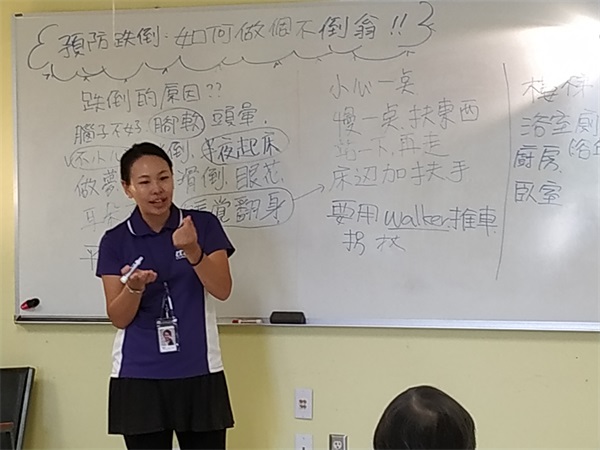 預防跌倒.如何做個不倒翁!!
跌倒的原因??
腦子不好.腳軟.頭暈.
不小心 倒.半夜起床
做夢 滑倒.眼芯
耳朵 睡觉翻身
平
小心一点
慢一点.扶東西
站一下.再走
床边加扶手
要用walker.推車
拐杖
楼梯
浴室廁
廚房.浴
臥室